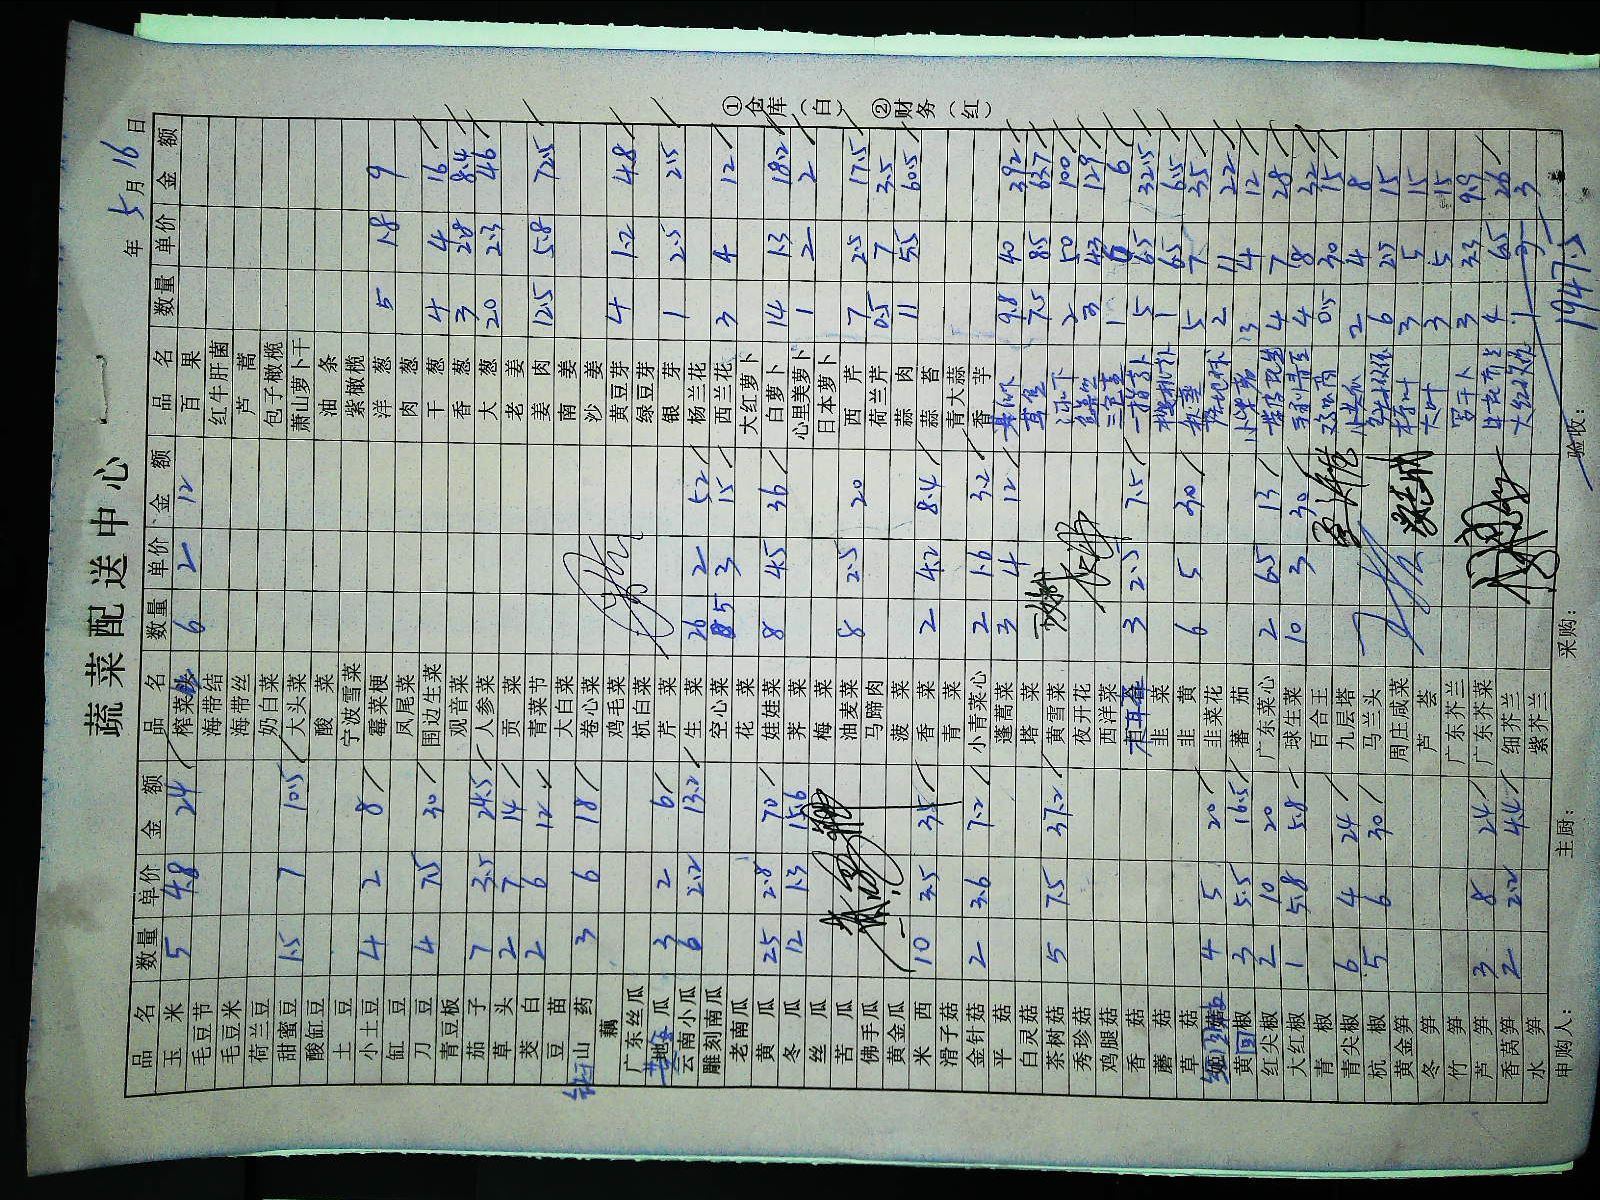 蔬菜配送中心
年 5月16日
品名 数量 单价 金额 品名 数量 单价 金额 品名 数量 单价 金额
玉米 5 4.8 24 榨菜 6 2 12 百果
毛豆节 海带结 红牛肝菌
毛豆米 海带丝 芦蒿
荷兰豆 奶白菜 包子橄榄
甜蜜豆 1.5 7 10.5 大头菜 萧山萝卜干
酸缸豆 酸菜 油条
土豆 宁波雪菜 紫橄榄
小土豆 4 2 8 霉菜梗 洋葱 5 1.8 9
缸豆 凤尾菜 肉葱
刀豆 4 7.5 30 围边生菜 干葱 4 4 16
青豆板 观音菜 香葱 3 2.8 8.4
茄子 7 3.5 24.5 人参菜 大葱 20 2.3 46
草头 2 7 14 贡菜 老姜
茭白 2 6 12 青菜节 姜肉 12.5 5.8 72.5
豆苗 大白菜 南姜
山药 3 6 18 卷心菜 沙姜
藕 鸡毛菜 黄豆芽 4 1.2 4.8
广东丝瓜 杭白菜 绿豆芽
地瓜 3 2 6 芹菜 银芽 1 2.5 2.5
云南小瓜 6 2.2 13.2 生菜 26 2 52 杨兰花
雕刻南瓜 空心菜 5 3 15 西兰花 3 4 12
老南瓜 花菜 大红萝卜
黄瓜 25 2.8 70 娃娃菜 8 4.5 36 白萝卜 14 1.3 18.2
冬瓜 12 1.3 15.6 荠菜 心里美萝卜 1 2 2
丝瓜 梅菜 日本萝卜
苦瓜 油麦菜 8 2.5 20 西芹 7 2.5 17.5
佛手瓜 马蹄肉 荷兰芹 0.5 7 3.5
黄金瓜 菠菜 蒜肉 11 5.5 60.5
米西 10 3.5 35 香菜 2 4.2 8.4 蒜苔
滑子菇 青菜 青大蒜
金针菇 2 3.6 7.2 小青菜心 2 1.6 3.2 香芋
平菇 蓬蒿菜 3 4 12 9.8 40 392
白灵菇 塔菜 7.5 8.5 63.7
茶树菇 5 7.5 37.2 黄雪菜 2 50 100
秀珍菇 夜开花 3 43 129
鸡腿菇 西洋菜 三色堇 1 6 6
香菇 3 2.5 7.5 5 6.5 32.5
蘑菇 韭菜 1 6.5 6.5
草菇 韭黄 6 5 30 秋葵 5 7 35
4 5 20 韭菜花 2 11 22
黄椒 3 5.5 16.5 蕃茄 3 4 12
红尖椒 2 10 20 广东菜心 2 6.5 13 4 7 28
大红椒 1 5.8 5.8 球生菜 10 3 30 4 8 32
青椒 百合王 0.5 30 15
青尖椒 6 4 24 九层塔 2 4 8
杭椒 5 6 30 马兰头 6 2.5 15
黄金笋 周庄咸菜 3 5 15
冬笋 芦荟 大叶 3 5 15
竹笋 广东芥兰 3 3.3 9.9
芦笋 3 8 24 广东芥菜 4 6.5 26
香莴笋 2 2.2 4.4 细芥兰 1 3 3
水笋 紫芥兰
1947.5
申购人: 主厨: 采购: 验收:
①仓库(白) ②财务(红)